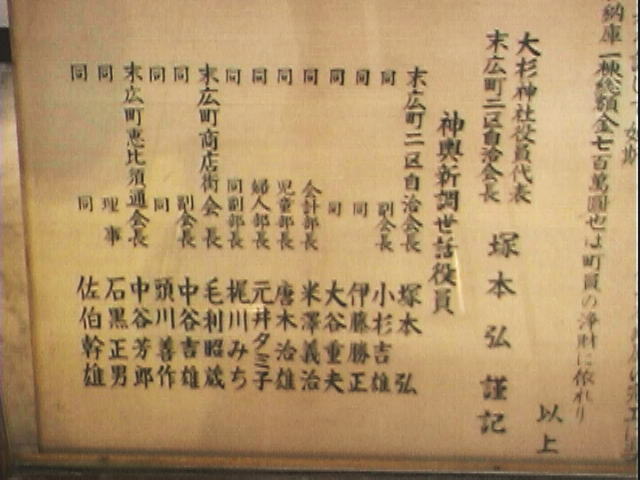 納庫一棟総額金七百萬圓也は町員の浄財に依れり
以上
大杉神社役員代表
末広町二区自治会長 塚本 弘 謹記
神輿新調世話役員
末広町二区自治会長 塚本 弘
同 副会長 小杉吉雄
同 同 伊藤勝正
同 同 大谷重夫
同 会計部長 米澤義治
同 児童部長 唐木治雄
同 婦人部長 元井タミ子
同 同副部長 梶川みち
末広町商店街会長 毛利昭蔵
同 副会長 中谷吉雄
同 同 頭川善作
末広町恵比須通会長 中谷芳郎
同 理事 石黒正男
同 同 佐伯幹雄